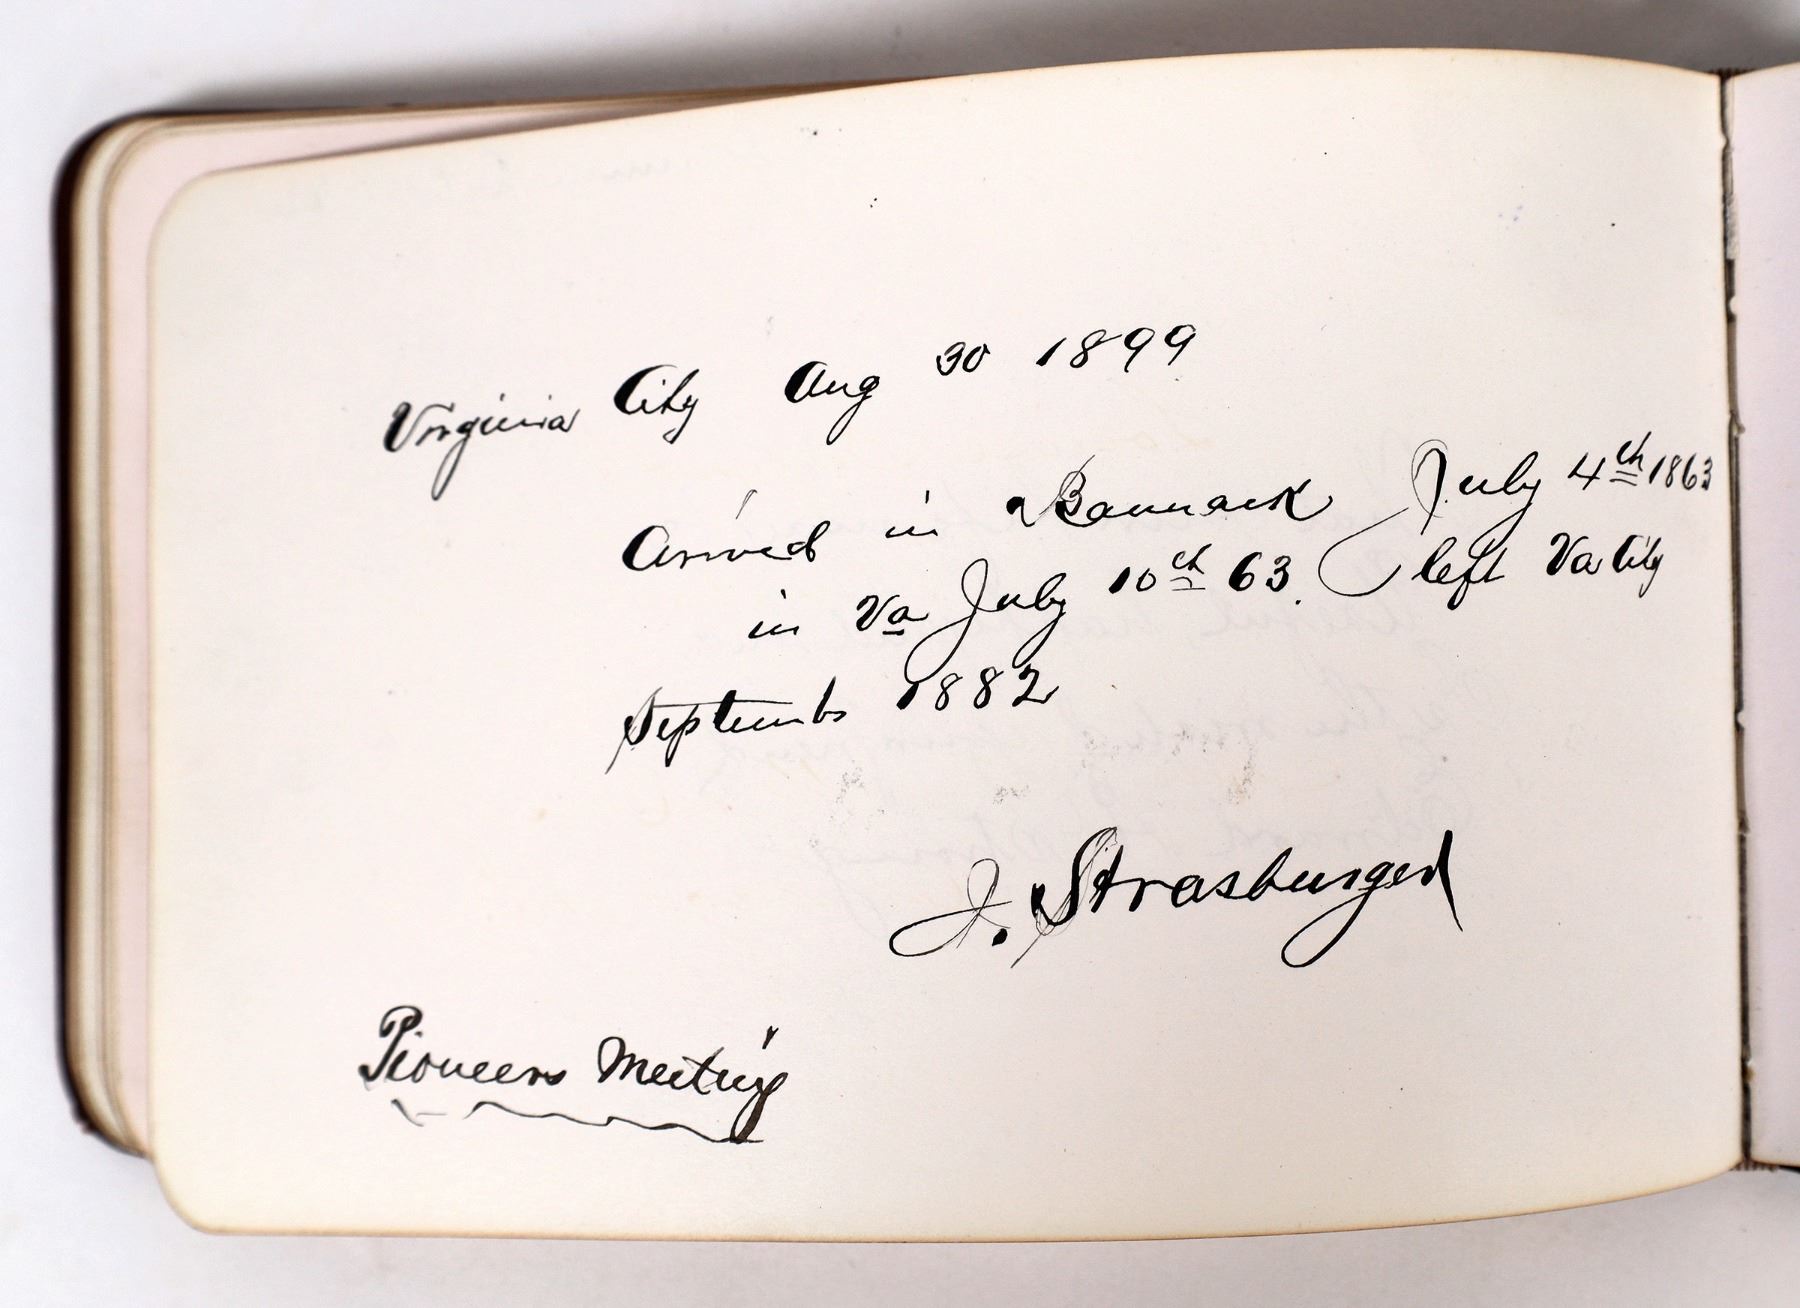 Virginia City Aug 30 1899
Arrived in Bannack July 4th 1863
in Va July 10th 63. left Va City
September 1882
J. Strasburger
Pioneers Meeting